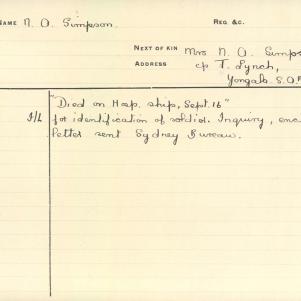 NAME N. O. Simpson. REG &C.
NEXT OF KIN Mrs N. O. Simps
ADDRESS c/o T. Lynch,
Yongala S.A
"Died on Hosp. ship, Sept. 16"
for identification of soldier. Inquiry, enc
letter sent Sydney Bureau.